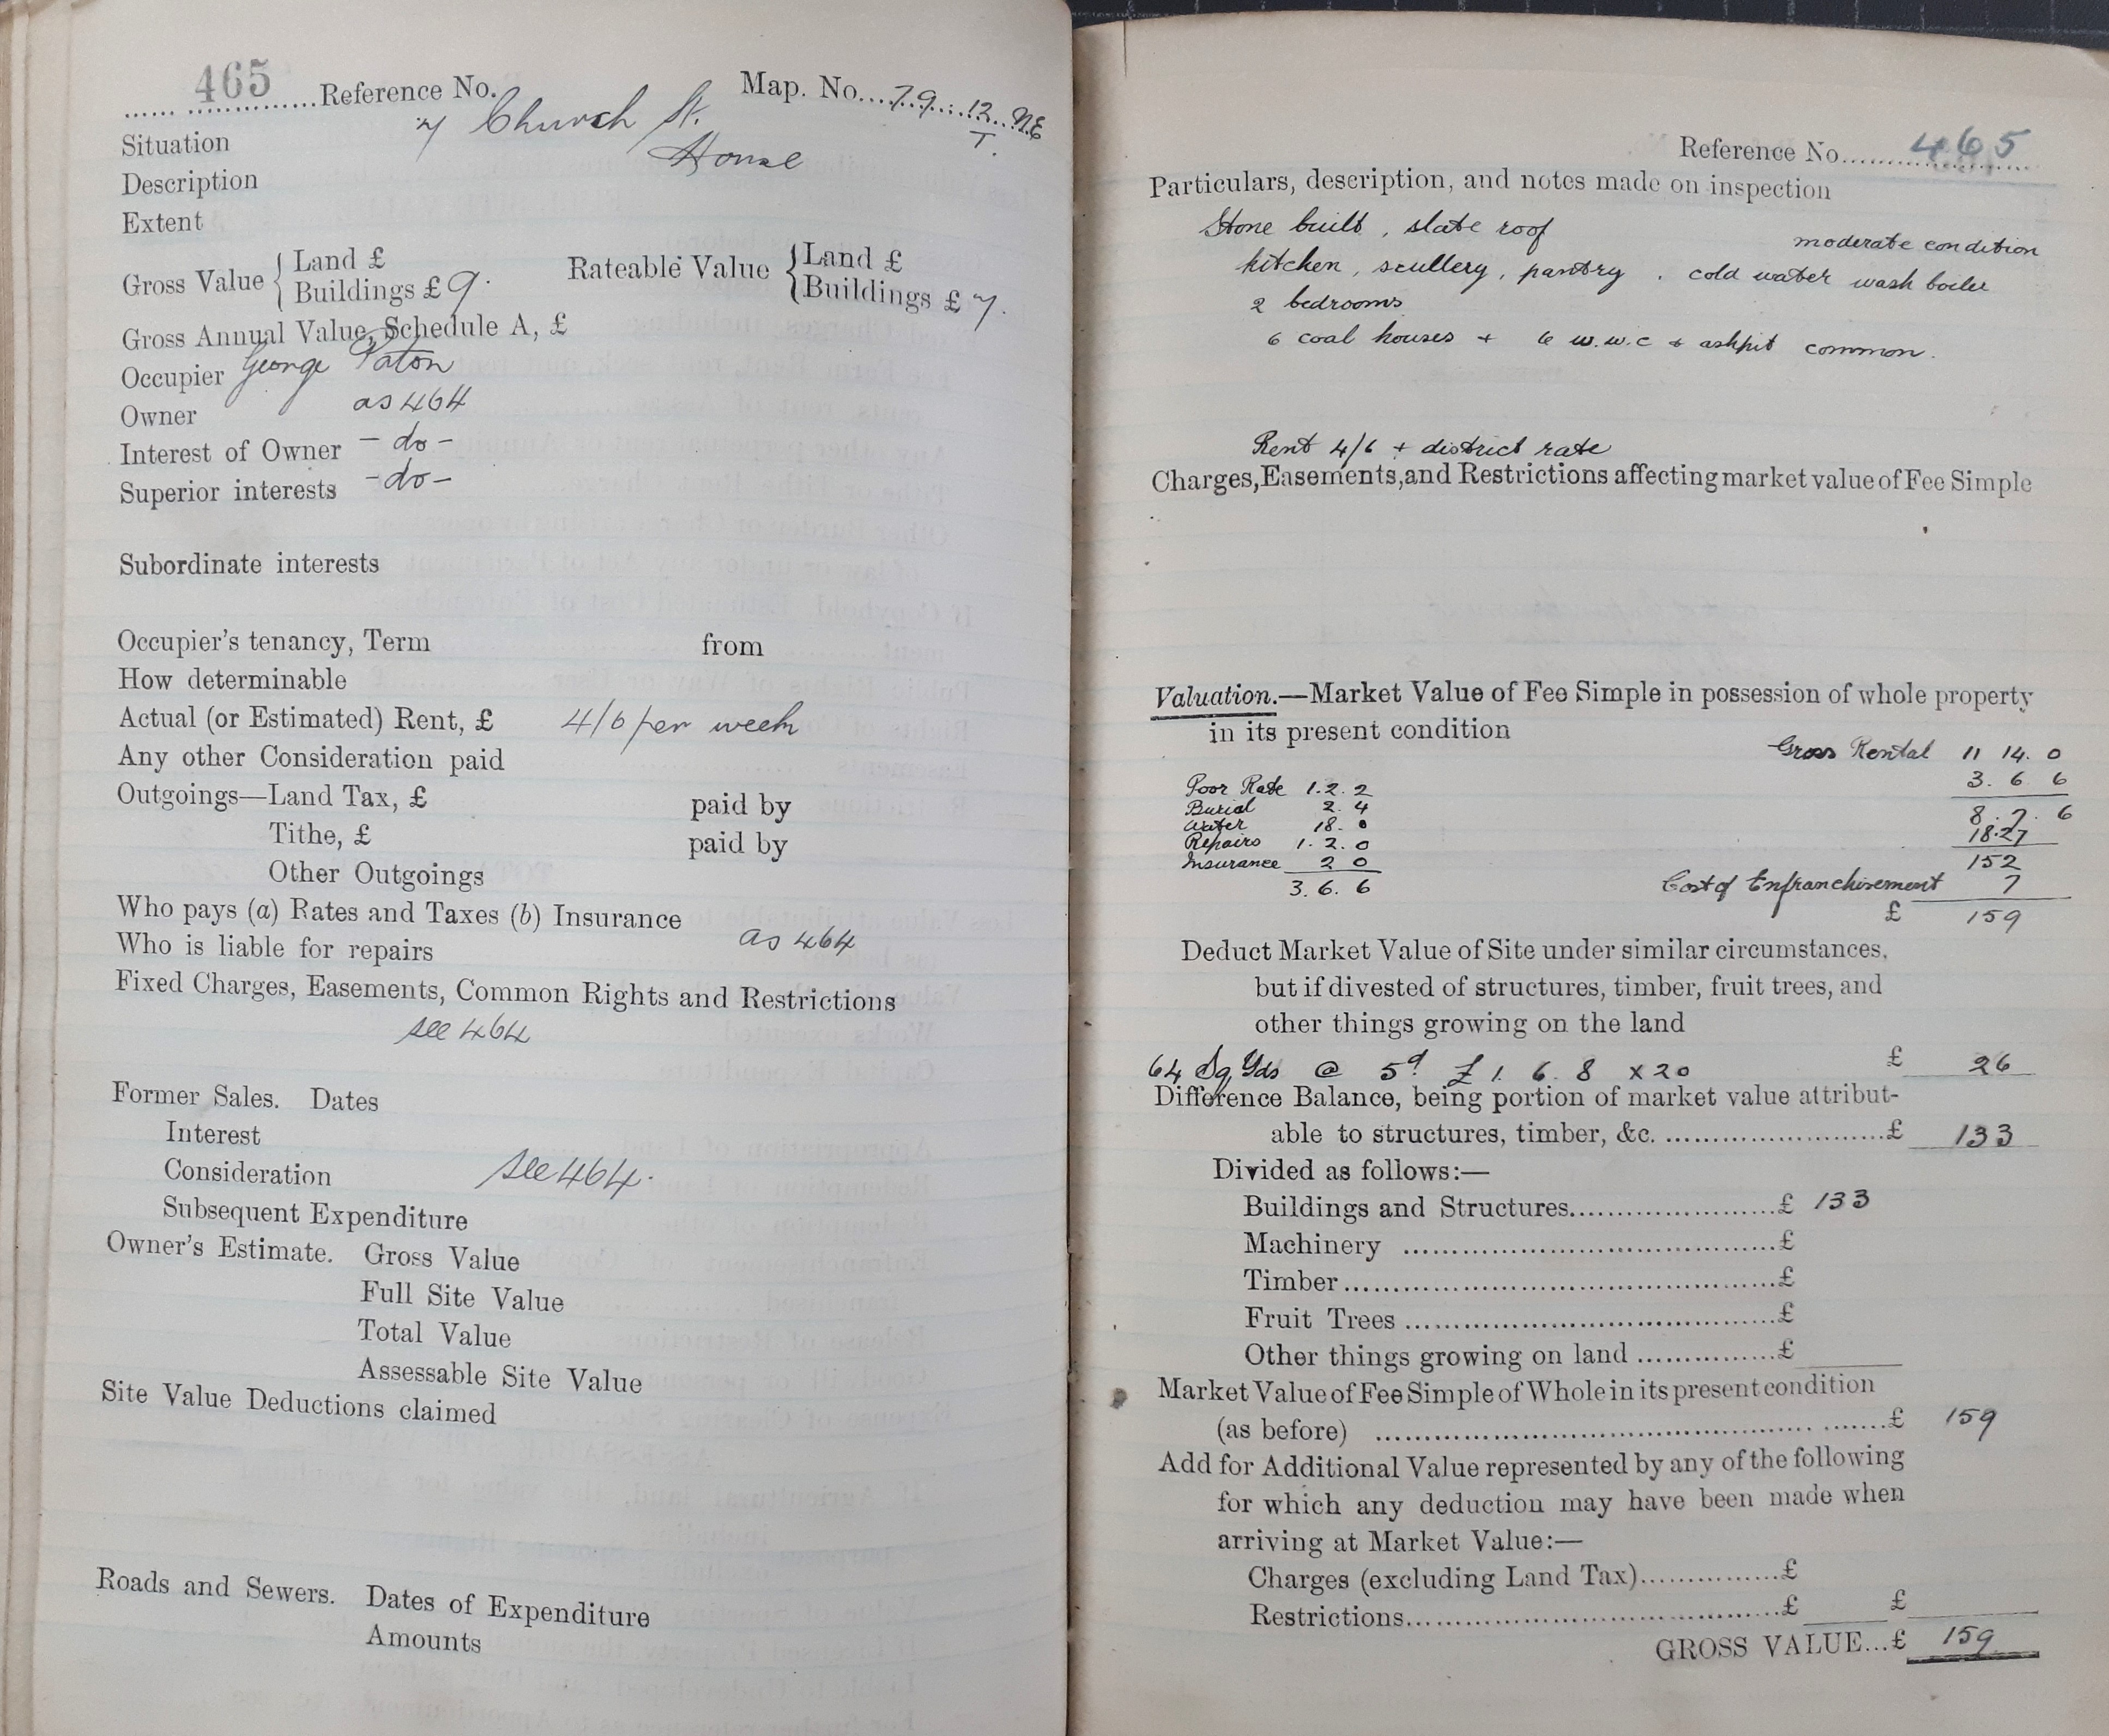 465 Reference No. Map. No. 79. 12. NE
T.
Situation 7 Church St.
Description House
Extent
Gross Value { Land £ Rateable Value { Land £
Buildings £ 9. Buildings £ 7.
Gross Annual Value, Schedule A, £
Occupier George Paton
Owner as 464
Interest of Owner - do -
Superior interests - do -
Subordinate interests
Occupier's tenancy, Term from
How determinable
Actual (or Estimated) Rent, £ 4/6 per week
Any other Consideration paid
Outgoings—Land Tax, £ paid by
Tithe, £ paid by
Other Outgoings
Who pays (a) Rates and Taxes (b) Insurance
as 464
Who is liable for repairs
Fixed Charges, Easements, Common Rights and Restrictions
see 464
Former Sales. Dates
Interest
Consideration see 464.
Subsequent Expenditure
Owner's Estimate. Gross Value
Full Site Value
Total Value
Assessable Site Value
Site Value Deductions claimed
Roads and Sewers. Dates of Expenditure
Amounts
Reference No. 465
Particulars, description, and notes made on inspection
Stone built, slate roof moderate condition
kitchen, scullery, pantry, cold water wash boiler
2 bedrooms
6 coal houses + 6 w.w.c + ashpit common.
Rent 4/6 + district rate
Charges, Easements, and Restrictions affecting market value of Fee Simple
Valuation.—Market Value of Fee Simple in possession of whole property
in its present condition
Gross Rental 11 14. 0
Poor Rate 1. 2. 2 3. 6 6
Burial 2. 4 8. 7. 6
Water 18. 0 18.27
Repairs 1. 2. 0 152
Insurance 2 0 Cost of Enfranchisement 7
3. 6. 6 £ 159
Deduct Market Value of Site under similar circumstances,
but if divested of structures, timber, fruit trees, and
other things growing on the land
64 Sq Yds @ 5d £ 1. 6. 8 x 20 £ 26
Difference Balance, being portion of market value attribut-
able to structures, timber, &c. £ 133
Divided as follows:—
Buildings and Structures £ 133
Machinery £
Timber £
Fruit Trees £
Other things growing on land £
Market Value of Fee Simple of Whole in its present condition
(as before) £ 159
Add for Additional Value represented by any of the following
for which any deduction may have been made when
arriving at Market Value:—
Charges (excluding Land Tax) £
Restrictions £ £
GROSS VALUE...£ 159